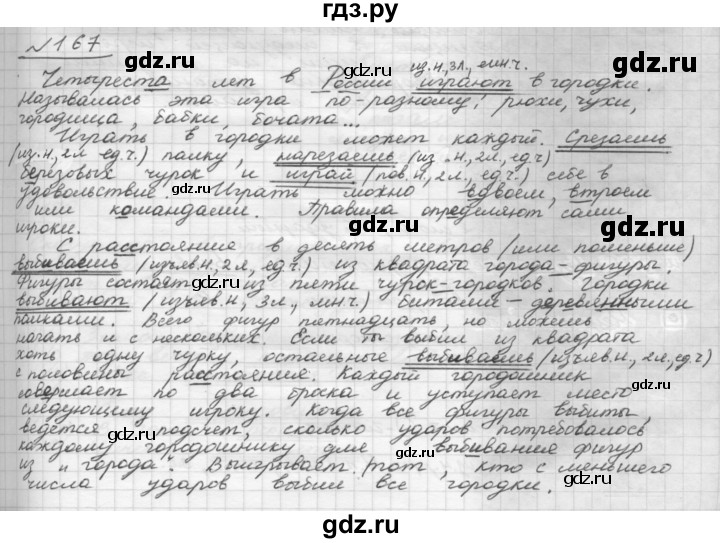 гдз.ру
№167
gdz.ru gdz.ru
из.н., 3л., мн.ч.
Четыреста лет в России играют в городки.
Называлась эта игра по-разному: рюхи, чухи,
городища, бабки, бочата...
gdz.ru gdz.ru
Играть в городки может каждый. Срезаешь
(из.н., 2л. ед.ч.) палку, нарезаешь (из.н., 2л., ед.ч)
берёзовых чурок и играй (пов.н., 2л., ед.ч.) себе в
удовольствие. Играть можно вдвоём, втроем
gdz.ru gdz.ru
или командами. Правила определяют сами
игроки.
С расстояния в десять метров (или поменьше)
выбиваешь (изъяв.н, 2л, ед.ч.) из квадрата города-фигуры.
gdz.ru gdz.ru
Фигуры состоят из пяти чурок-городков. Городки
выбивают (изъяв.н, 3л., мн.ч) битами - деревянными
палками. Всего фигур пятнадцать но можешь
начать и с нескольких. Если ты выбил из квадрата
хоть одну чурку, остальные выбиваешь (изъяв.н, 2л, ед.ч)
gdz.ru gdz.ru
с половины расстояния. Каждый городошник
совершает по два броска и уступает место
следующему игроку. Когда все фигуры выбиты,
ведётся подсчет, сколько ударов потребовалось
gdz.ru gdz.ru
каждому городошнику для выбивания фигур
из "города". Выигрывает тот, кто с меньшего
числа ударов выбил все городки.
gdz.ru gdz.ru
gdz.ru